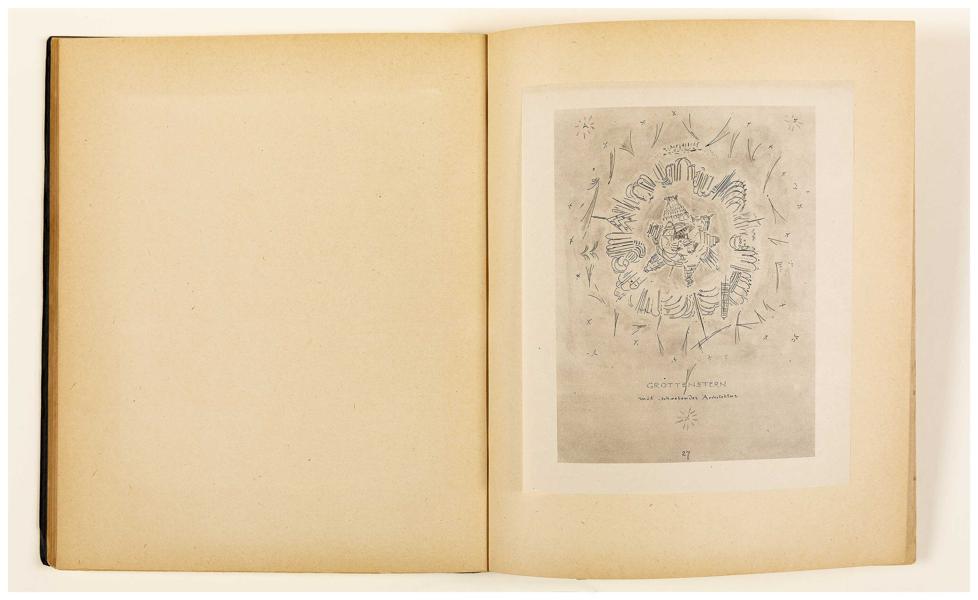 GROTTENSTERN
mit schwebender Architektur
27